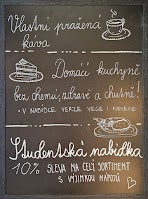 Vlastní pražená
káva
Domácí kuchyně
bez chemií, zdravé a chutné!
+ V NABÍDCE VERZE VEGE I
Studentská nabídka
10% SLEVA NA CELÝ SORTIMENT
S VÝJIMKOU NÁPOJŮ